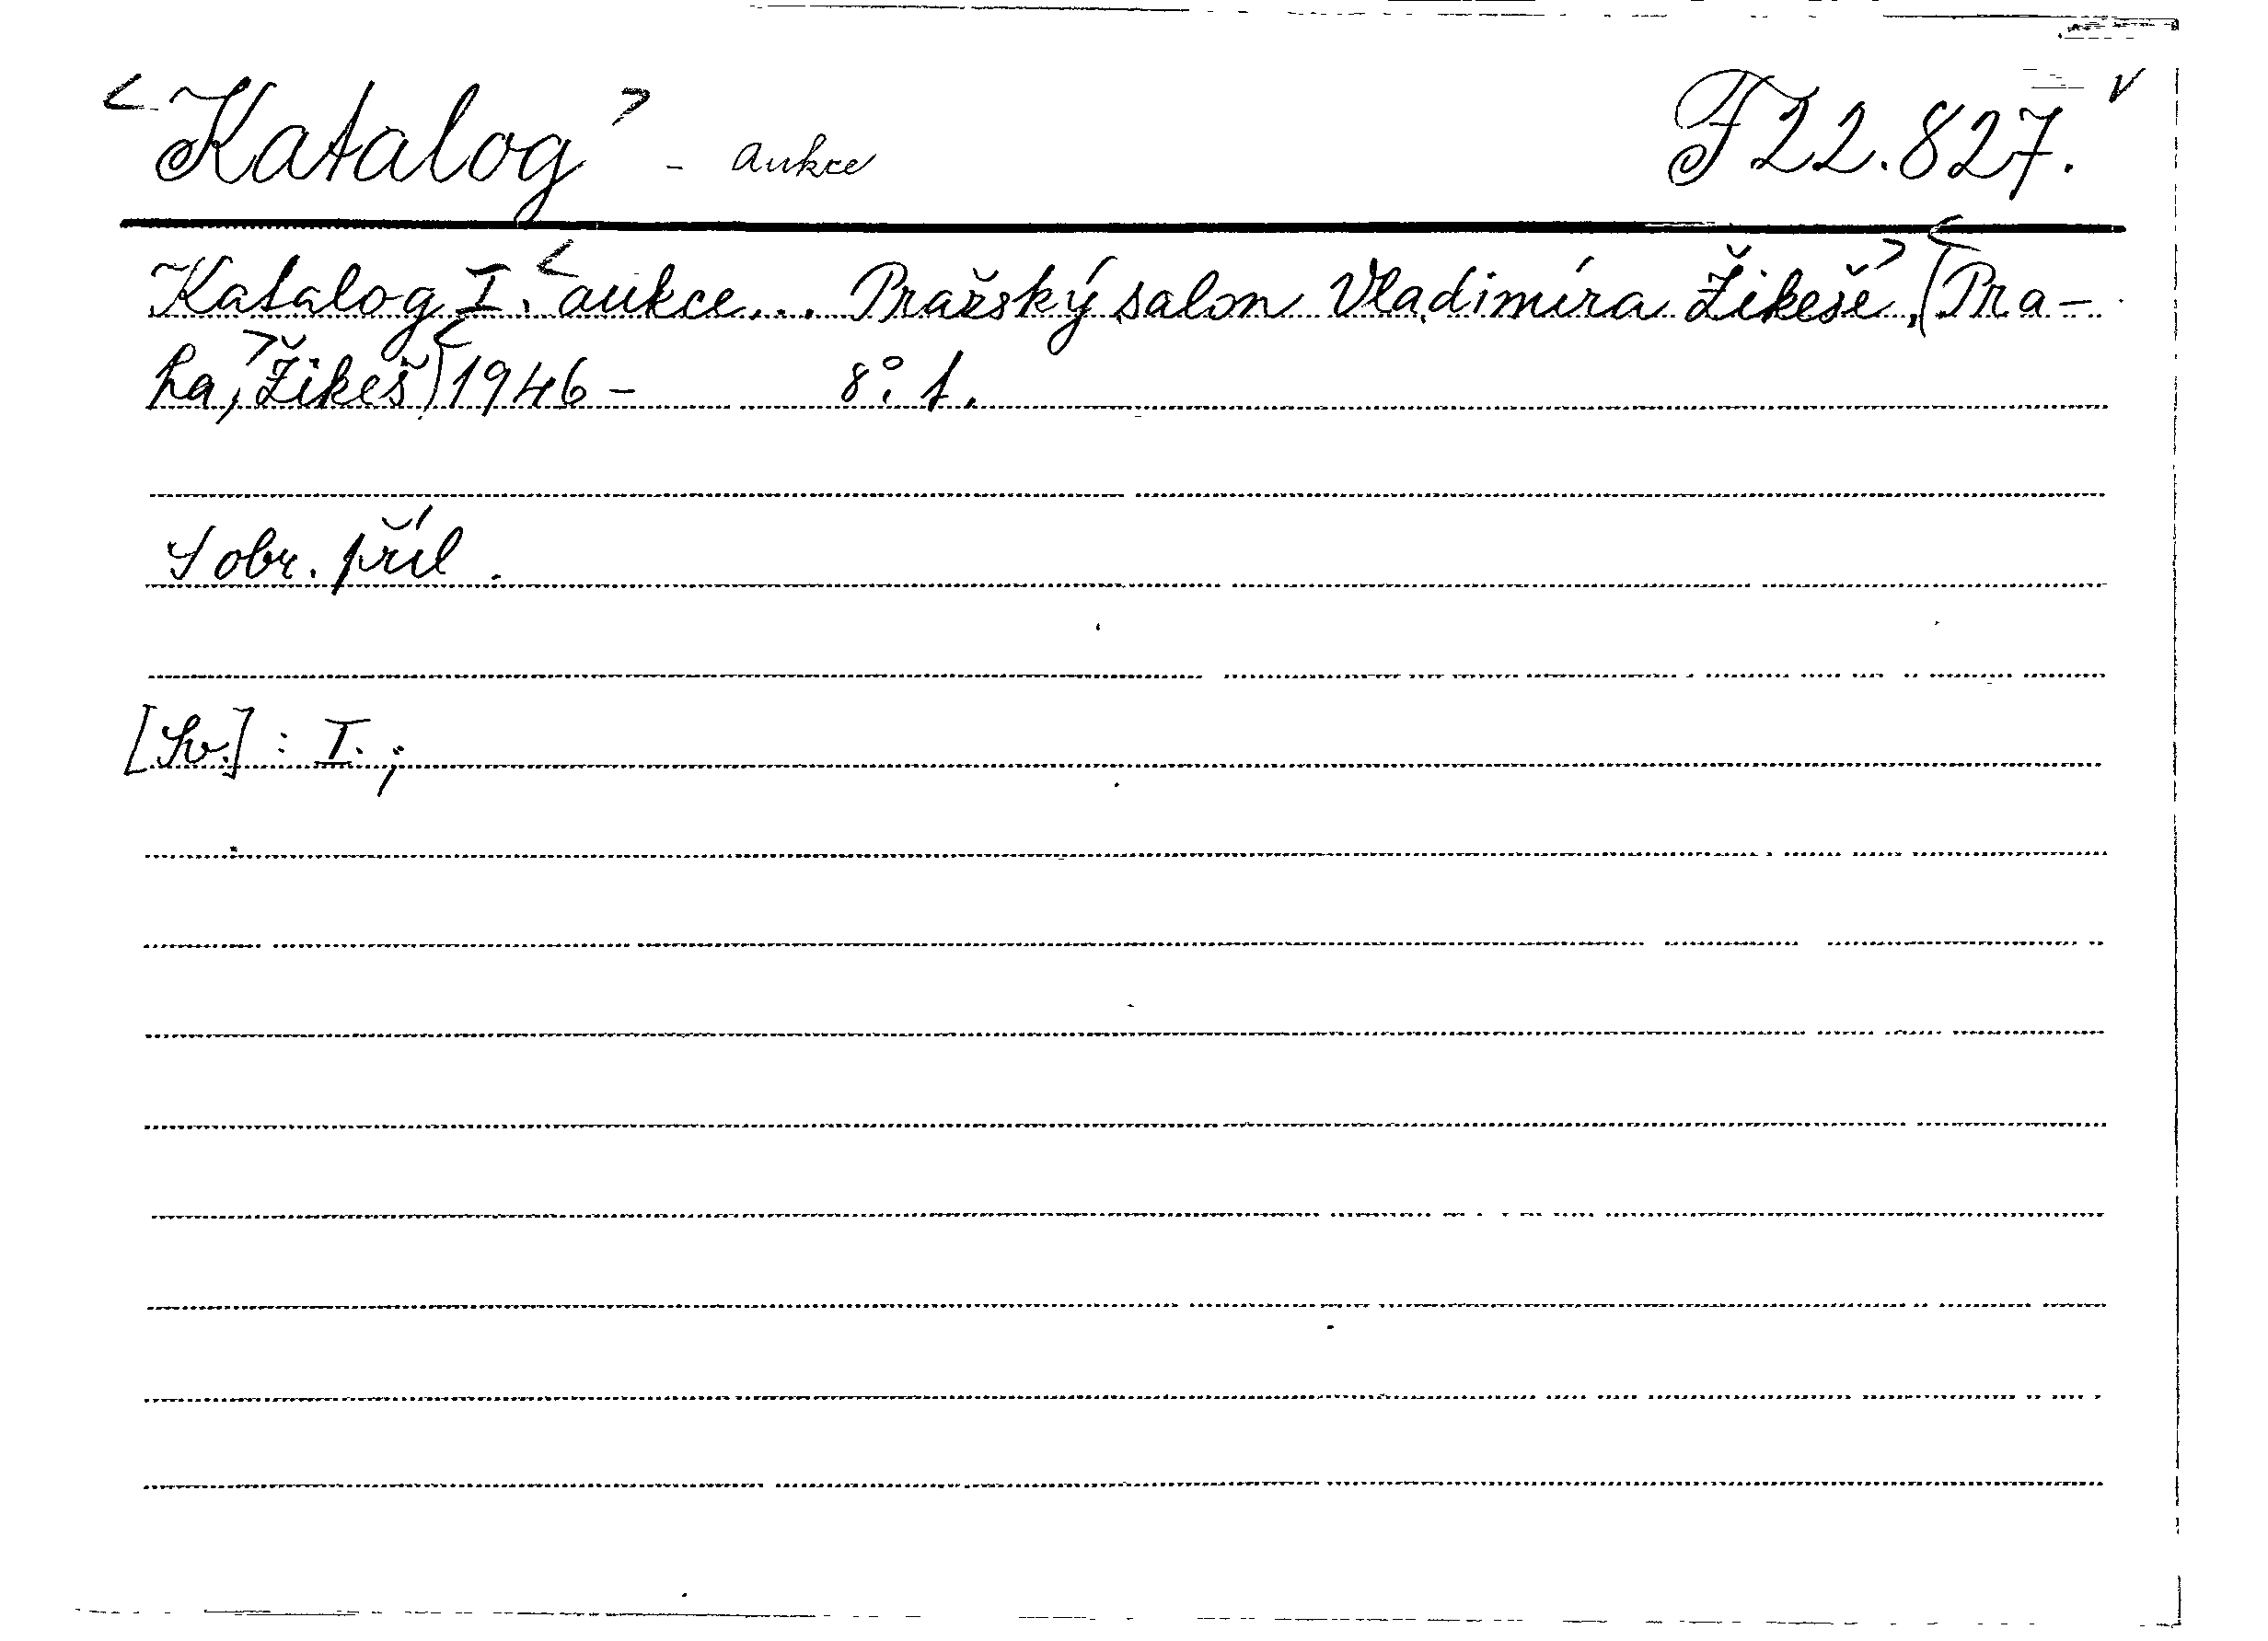 <Katalog> - aukce F 22.827. v
Katalog I. <aukce... Pražský salon Vladimíra Žikeše>. <(Pra-
ha,> Žikeš) <1946- 8°. f.
S obr. příl.
[Sv.] : I. ;